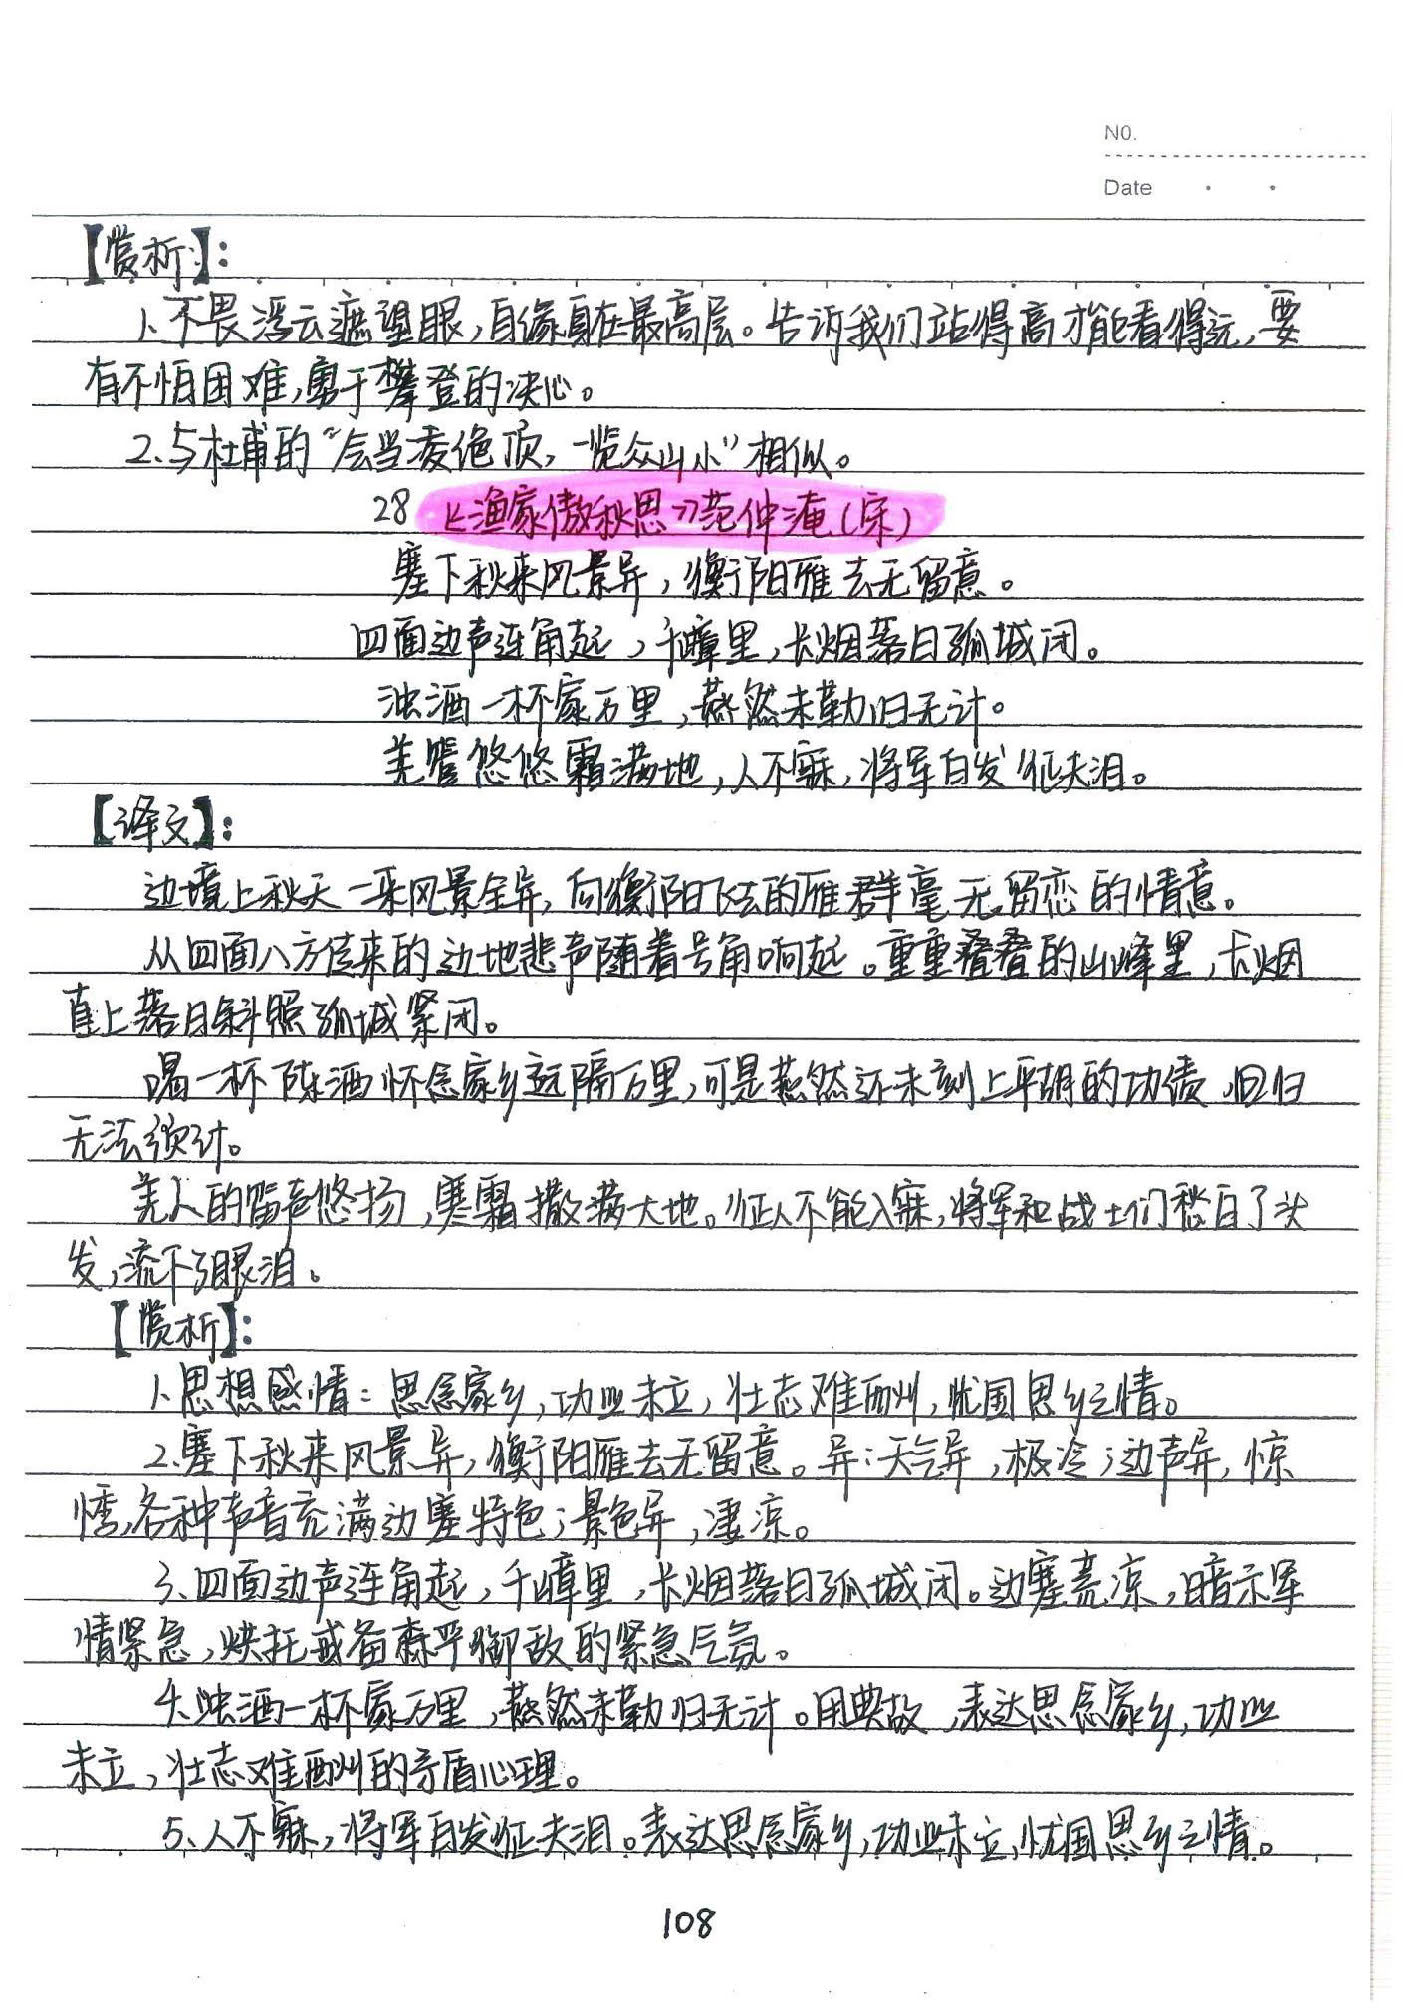 NO.
Date
【赏析】：
1、不畏浮云遮望眼，自缘身在最高层。告诉我们站得高才能看得远，要
有不怕困难，勇于攀登的决心。
2、与杜甫的“会当凌绝顶，一览众山小”相似。
28 《渔家傲秋思》范仲淹（宋）
塞下秋来风景异，衡阳雁去无留意。
四面边声连角起，千嶂里，长烟落日孤城闭。
浊酒一杯家万里，燕然未勒归无计。
羌管悠悠霜满地，人不寐，将军白发征夫泪。
【译文】：
边境上秋天一来风景全异，向衡阳飞去的雁群毫无留恋的情意。
从四面八方传来的边地悲声随着号角响起。重重叠叠的山峰里，长烟
直上落日斜照孤城紧闭。
喝一杯陈酒怀念家乡远隔万里，可是燕然还未刻上平胡的功绩，回归
无法预计。
羌人的笛声悠扬，寒霜撒满大地。征人不能入寐，将军和战士们愁白了头
发，流下了眼泪。
【赏析】：
1、思想感情：思念家乡，功业未立，壮志难酬，忧国思乡之情。
2、塞下秋来风景异，衡阳雁去无留意。异：天气异，极冷；边声异，惊
悸，各种声音充满边塞特色；景色异，凄凉。
3、四面边声连角起，千嶂里，长烟落日孤城闭。边塞荒凉，暗示军
情紧急，烘托戒备森严御敌的紧急气氛。
4、浊酒一杯家万里，燕然未勒归无计。用典故，表达思念家乡，功业
未立，壮志难酬的矛盾心理。
5、人不寐，将军白发征夫泪。表达思念家乡，功业未立，忧国思乡之情。
108